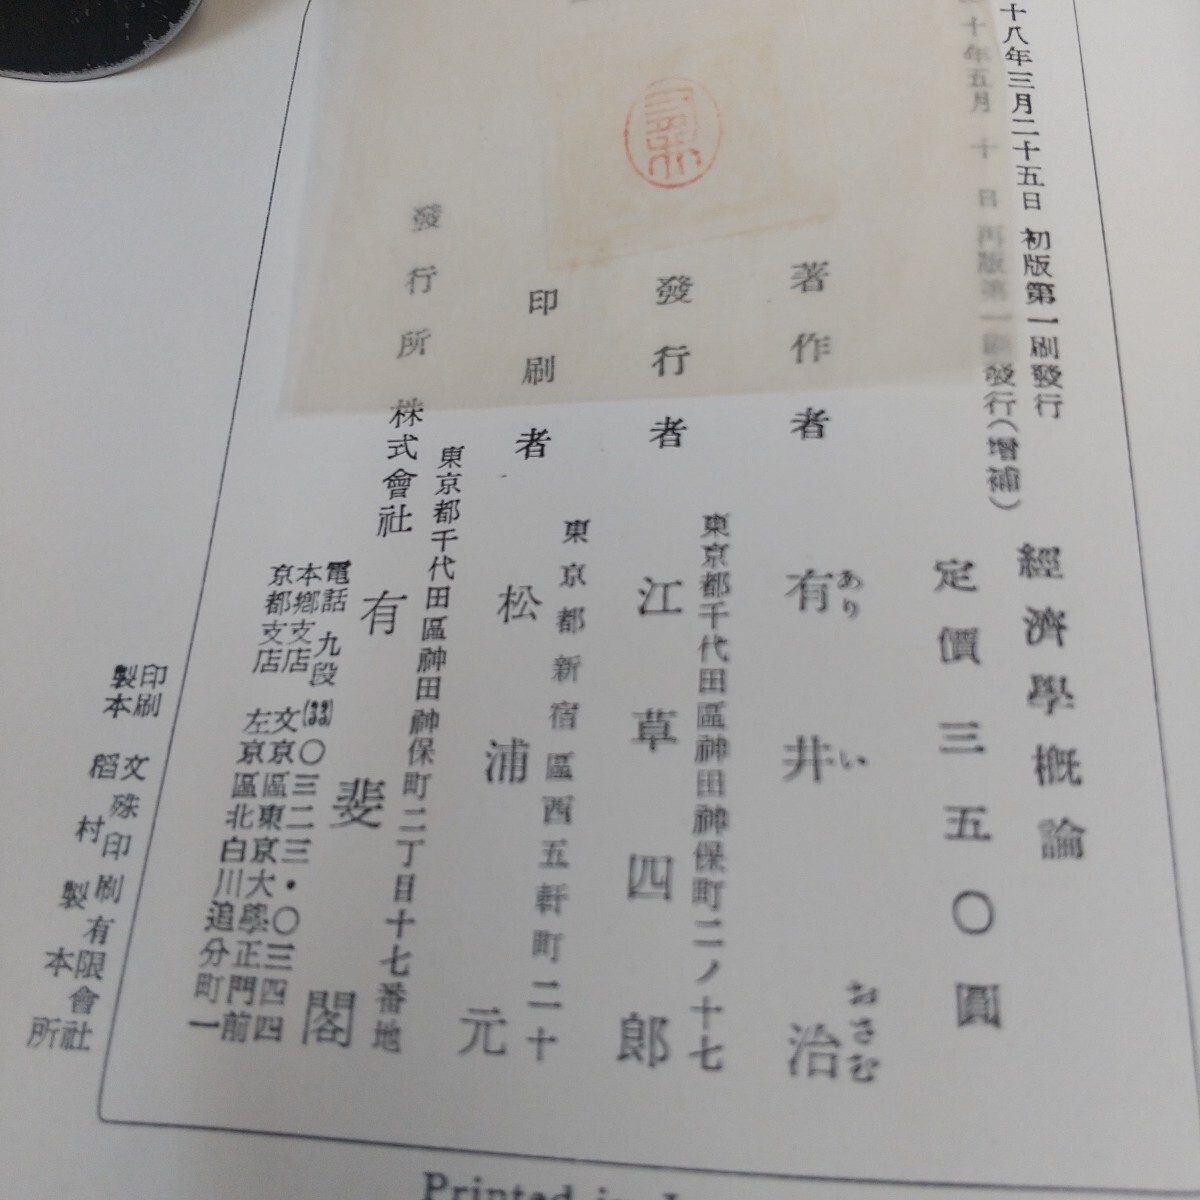 十八年三月二十五日 初版第一刷發行
十年五月 十 日 再版第一刷發行(增補)
經濟學概論
定價三五〇圓
著作者 有井治
あり い おさむ
東京都千代田區神田神保町二ノ十七
發行者 江草四郎
東京都新宿區西五軒町二十
印刷者 松浦元
東京都千代田區神田神保町二丁目十七番地
發行所 株式會社 有斐閣
電話 九段 〇三二三・〇三四四
本鄕支店 文京區東京大學正門前
京都支店 左京區北白川追分町一
印刷 文殊印刷有限會社
製本 稻村製本所
Printed in